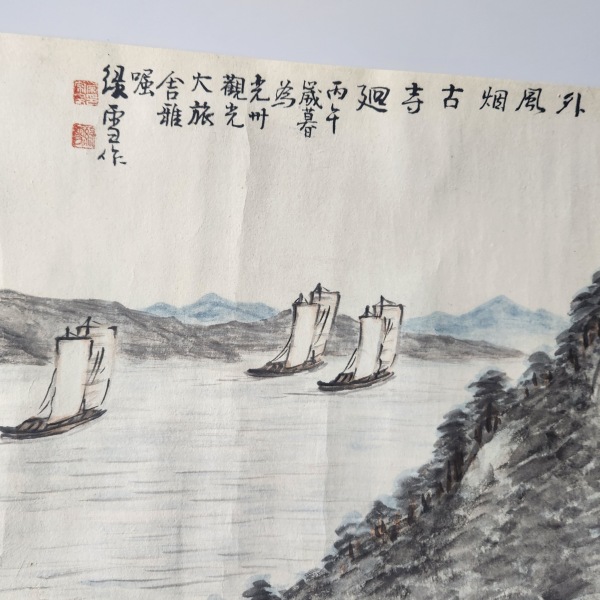 外風烟古寺廻
丙午
歲暮
為
光州
觀光
大旅
舍雅
囑
雪作